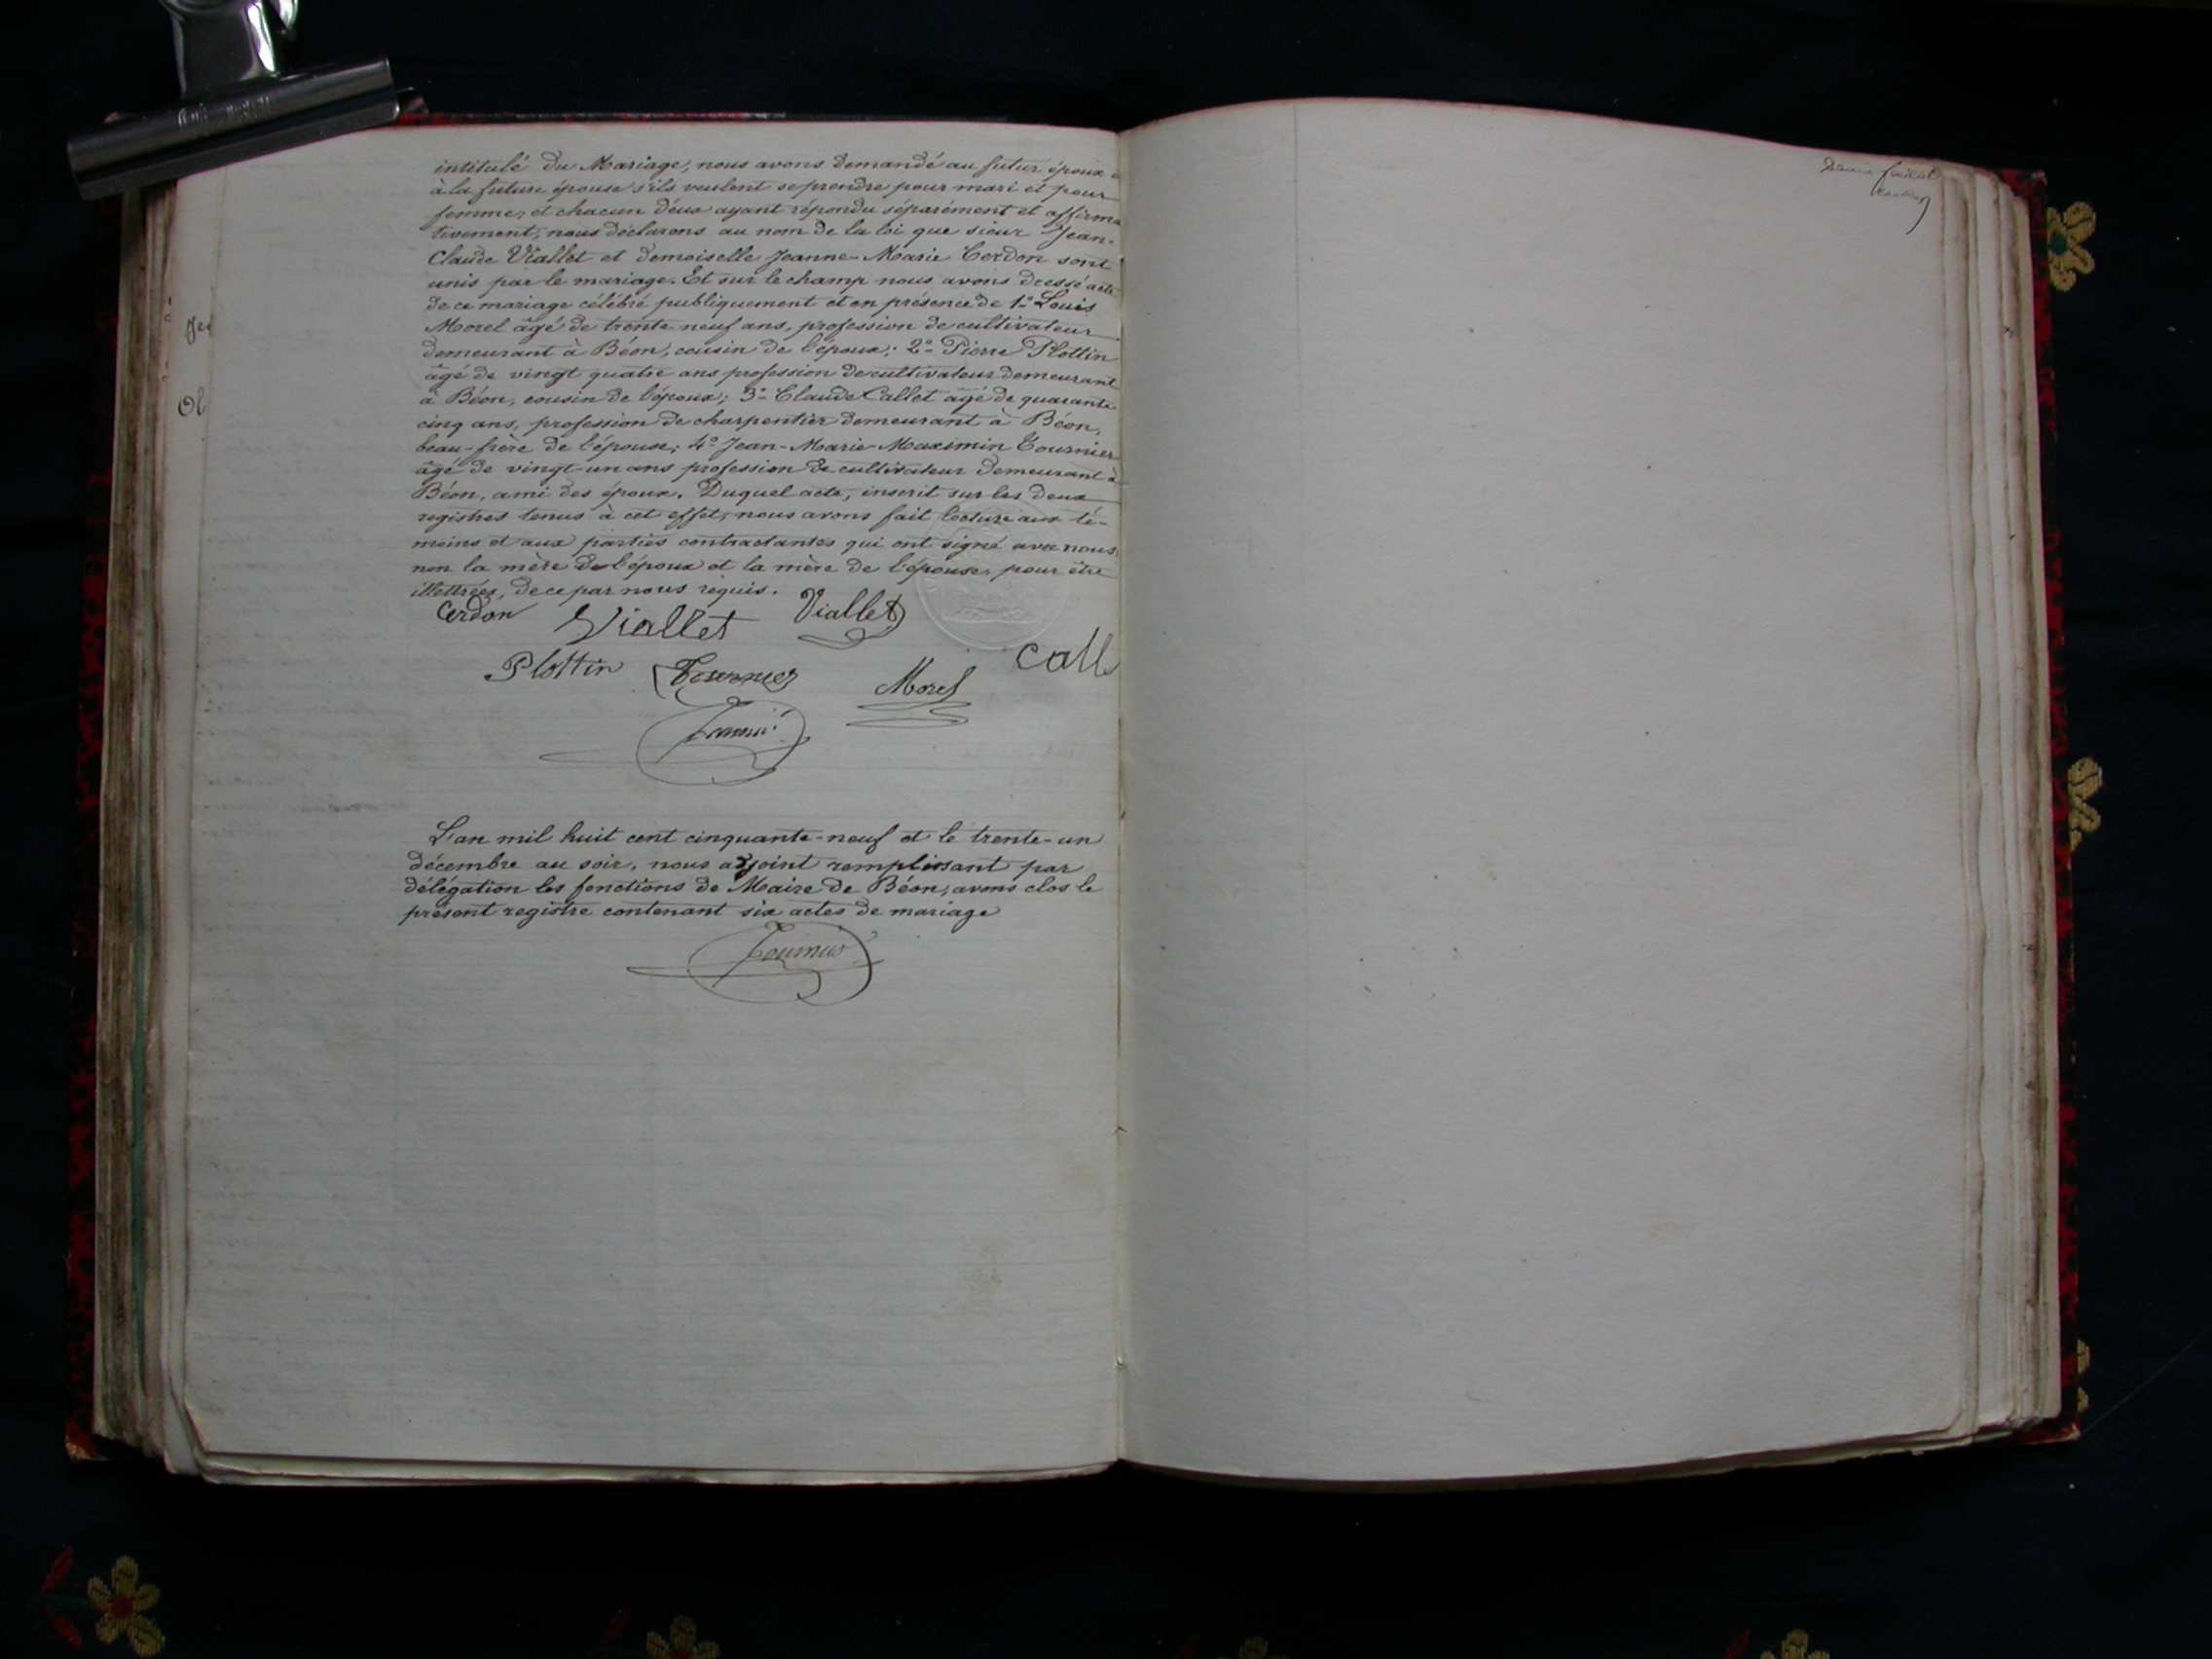 intitulé du Mariage, nous avons demandé au futur époux
à la future épouse s'ils veulent se prendre pour mari et pour
femme, et chacun d'eux ayant répondu séparément et affirma
tivement, nous déclarons au nom de la loi que sieur Jean-
Claude Viallet et demoiselle Jeanne-Marie Cerdon sont
unis par le mariage. Et sur le champ nous avons dressé acte
de ce mariage célébré publiquement et en présence de 1° Louis
Morel âgé de trente neuf ans, profession de cultivateur
demeurant à Béon, cousin de l'époux; 2° Pierre Plottin
âgé de vingt quatre ans profession de cultivateur demeurant
à Béon, cousin de l'époux; 3° Claude Callet âgé de quarante
cinq ans, profession de charpentier demeurant à Béon,
beau-frère de l'épouse; 4° Jean-Marie-Maximin Tournier
âgé de vingt-un ans profession de cultivateur demeurant à
Béon, ami des époux. Duquel acte, inscrit sur les deux
registres tenus à cet effet, nous avons fait lecture aux té-
moins et aux parties contractantes qui ont signé avec nous
non la mère de l'époux et la mère de l'épouse, pour être
illettrées, de ce par nous requis.
Cerdon Viallet Viallet
Plottin Tournier Morel Call
L'an mil huit cent cinquante-neuf et le trente-un
décembre au soir, nous adjoint remplissant par
délégation les fonctions de Maire de Béon, avons clos le
présent registre contenant six actes de mariage